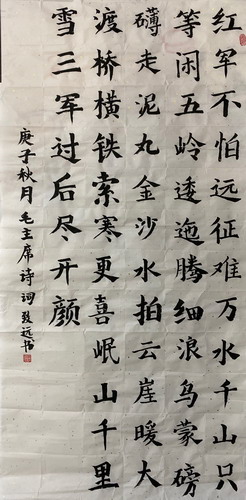 红军不怕远征难万水千山只
等闲五岭逶迤腾细浪乌蒙磅
礴走泥丸金沙水拍云崖暖大
渡桥横铁索寒更喜岷山千里
雪三军过后尽开颜
庚子秋月毛主席诗词致远书